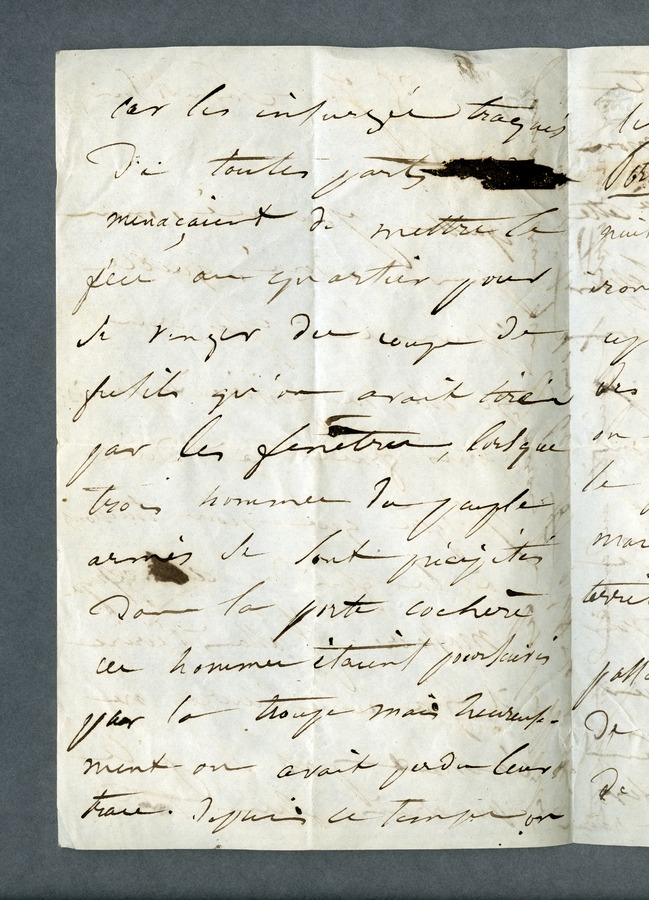 car les insurgés traqués
De toutes parts
menaçaient de mettre le
feu au quartier pour
se venger des coups de
fusils qu'on avait tirés
par les fenêtres, lorsque
trois hommes du peuple
armés se sont précipités
Dans la porte cochère
ces hommes étaient poursuivis
par la troupe mais heureuse-
ment on avait perdu leur
trace. Depuis ce temps on
des
on
le
De
de